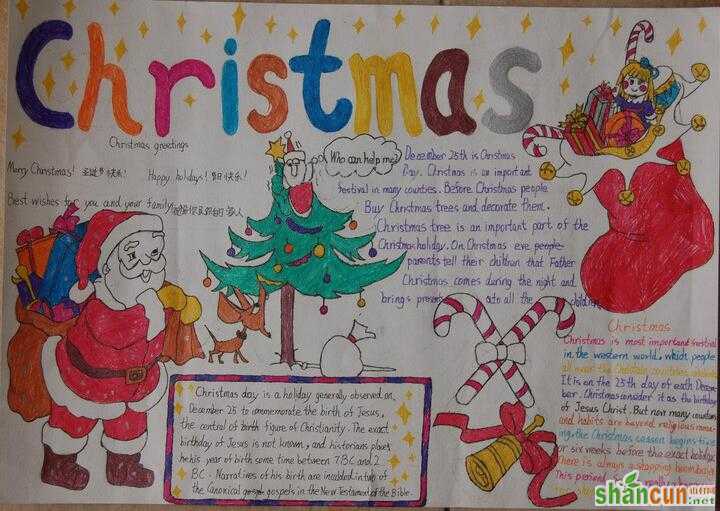 Christmas
Christmas greetings
Merry Christmas! 圣诞节快乐!
Happy holidays! 节日快乐!
Best wishes for you and your family
Who can help me?
December 25th is Christmas
Day. Christmas is an important
festival in many counties. Before Christmas people
Buy Christmas trees and decorate them.
Christmas tree is an important part of the
Christmas holiday. On Christmas eve people
parents tell their children that Father
Christmas comes during the night and
brings to all the children
Christmas
Christmas is most important festival
in the western world, which people
all over the Christian countries
It is on the 25th day of each Decem
ber. Christmas consider it as the birthday
of Jesus Christ. But now many
and habits are beyond religious
ing. the Christmas season begins
or six weeks before the exact holiday
There is always a shopping boom
This period
Christmas day is a holiday generally observed on
December 25 to commemorate the birth of Jesus,
the central of birth figure of Christianity. The exact
birthday of Jesus is not known, and historians place
his year of birth some time between 7 BC and 2
BC. Narratives of his birth are included in two of
the Canonical gospels in the New Testament of the Bible.
shancun
.net